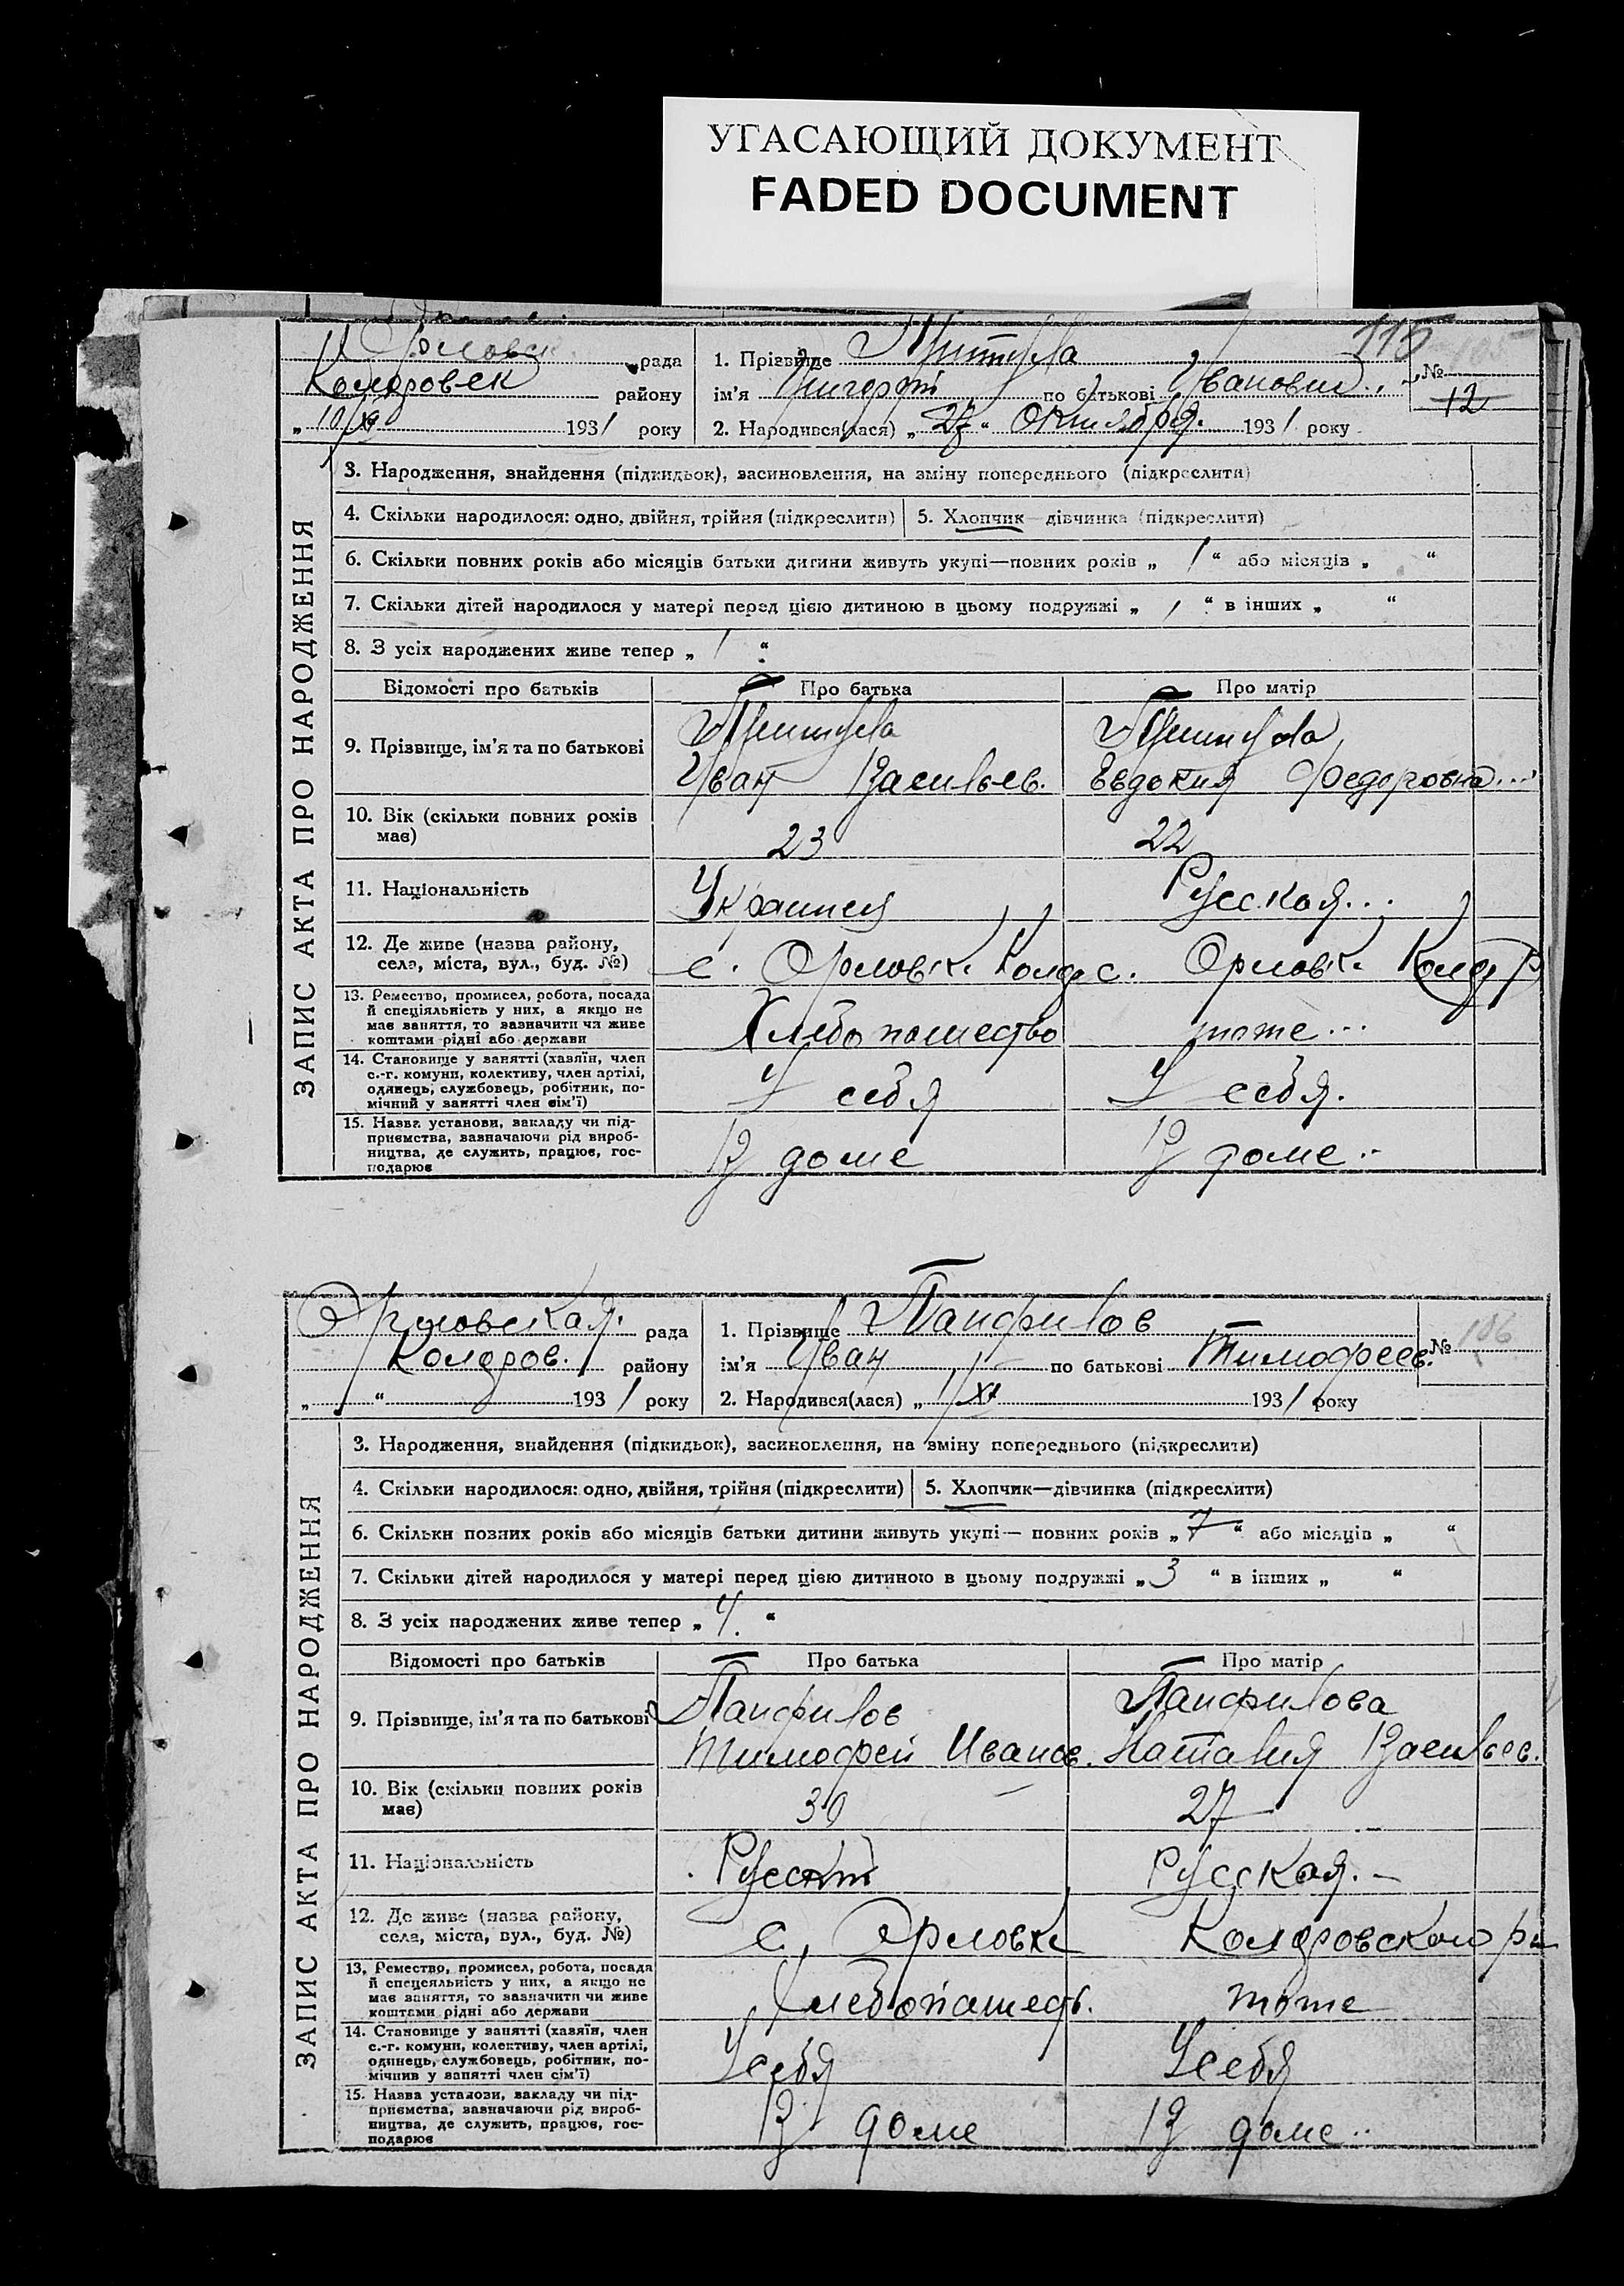 УГАСАЮЩИЙ ДОКУМЕНТ
FADED DOCUMENT
Орловск рада
Коларовск району
193 1 року
1. Прізвище
115
105
ім'я по батькові Иванович
2. Народився(лася) „ 27 “ Октября. 193 1 року
№
12
ЗАПИС АКТА ПРО НАРОДЖЕННЯ
3. Народження, знайдення (підкидьок), засиновлення, на зміну попереднього (підкреслити)
4. Скільки народилося: одно, двійня, трійня (підкреслити)
5. Хлопчик—дівчинка (підкреслити)
6. Скільки повних років або місяців батьки дитини живуть укупі—повних років „ 1 “ або місяців „ “
7. Скільки дітей народилося у матері перед цією дитиною в цьому подружжі „ “ в інших „ “
8. З усіх народжених живе тепер „ 1 “
Відомості про батьків
Про батька
Про матір
9. Прізвище, ім'я та по батькові
Иван Васильев.
Евдокия Федоровна...
10. Вік (скільки повних років має)
23
22
11. Національність
Украинец
Русская...
12. Де живе (назва району, села, міста, вул., буд. №)
с. Орловк. Колар
с. Орловк. Колар Р
13. Ремество, промисел, робота, посада й спеціяльність у них, а якщо не має заняття, то зазначити чи живе коштами рідні або держави
Хлебопашество
тоже...
14. Становище у занятті (хазяїн, член с.-г. комуни, колективу, член артілі, одинець, службовець, робітник, помічний у занятті член сім'ї)
У себя
У себя.
15. Назва установи, закладу чи підприємства, зазначаючи рід виробництва, де служить, працює, господарює
В доме
В доме..
Орловская. рада
Колоров. району
„ “ 193 1 року
1. Прізвище Панфилов
ім'я Иван по батькові Тимофеев.
2. Народився(лася) „ 1/XI 193 1 року
№ 106
ЗАПИС АКТА ПРО НАРОДЖЕННЯ
3. Народження, знайдення (підкидьок), засиновлення, на зміну попереднього (підкреслити)
4. Скільки народилося: одно, двійня, трійня (підкреслити)
5. Хлопчик—дівчинка (підкреслити)
6. Скільки повних років або місяців батьки дитини живуть укупі— повних років „ 7 “ або місяців „ “
7. Скільки дітей народилося у матері перед цією дитиною в цьому подружжі „ 3 “ в інших „ “
8. З усіх народжених живе тепер „ 4. “
Відомості про батьків
Про батька
Про матір
9. Прізвище, ім'я та по батькові
Панфилов
Тимофей Иванов.
Панфилова
Наталия Васильев.
10. Вік (скільки повних років має)
30
27
11. Національність
Русский
Русская.
12. Де живе (назва району, села, міста, вул., буд. №)
с. Орловке
Коларовского рн
13. Ремество, промисел, робота, посада й спецеяльність у них, а якщо не має заняття, то зазначити чи живе коштами рідні або держави
Хлебопашеств.
тоже
14. Становище у занятті (хазяїн, член с.-г. комуни, колективу, член артілі, одинець, службовець, робітник, помічних у занятті член сім'ї)
У себя
У себя
15. Назва установи, закладу чи підприємства, зазначаючи рід виробництва, де служить, працює, господарює
В доме
В доме..